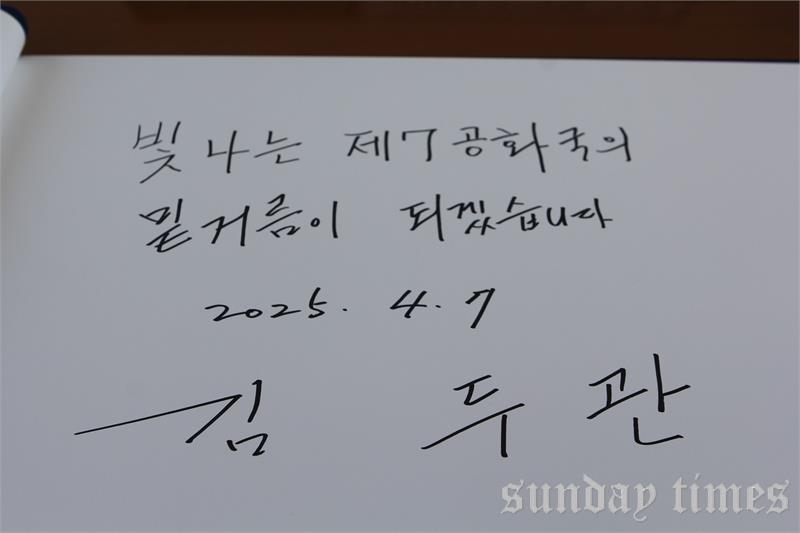 빛나는 제7공화국의
밑거름이 되겠습니다
2025. 4. 7
김 두 관
sunday times